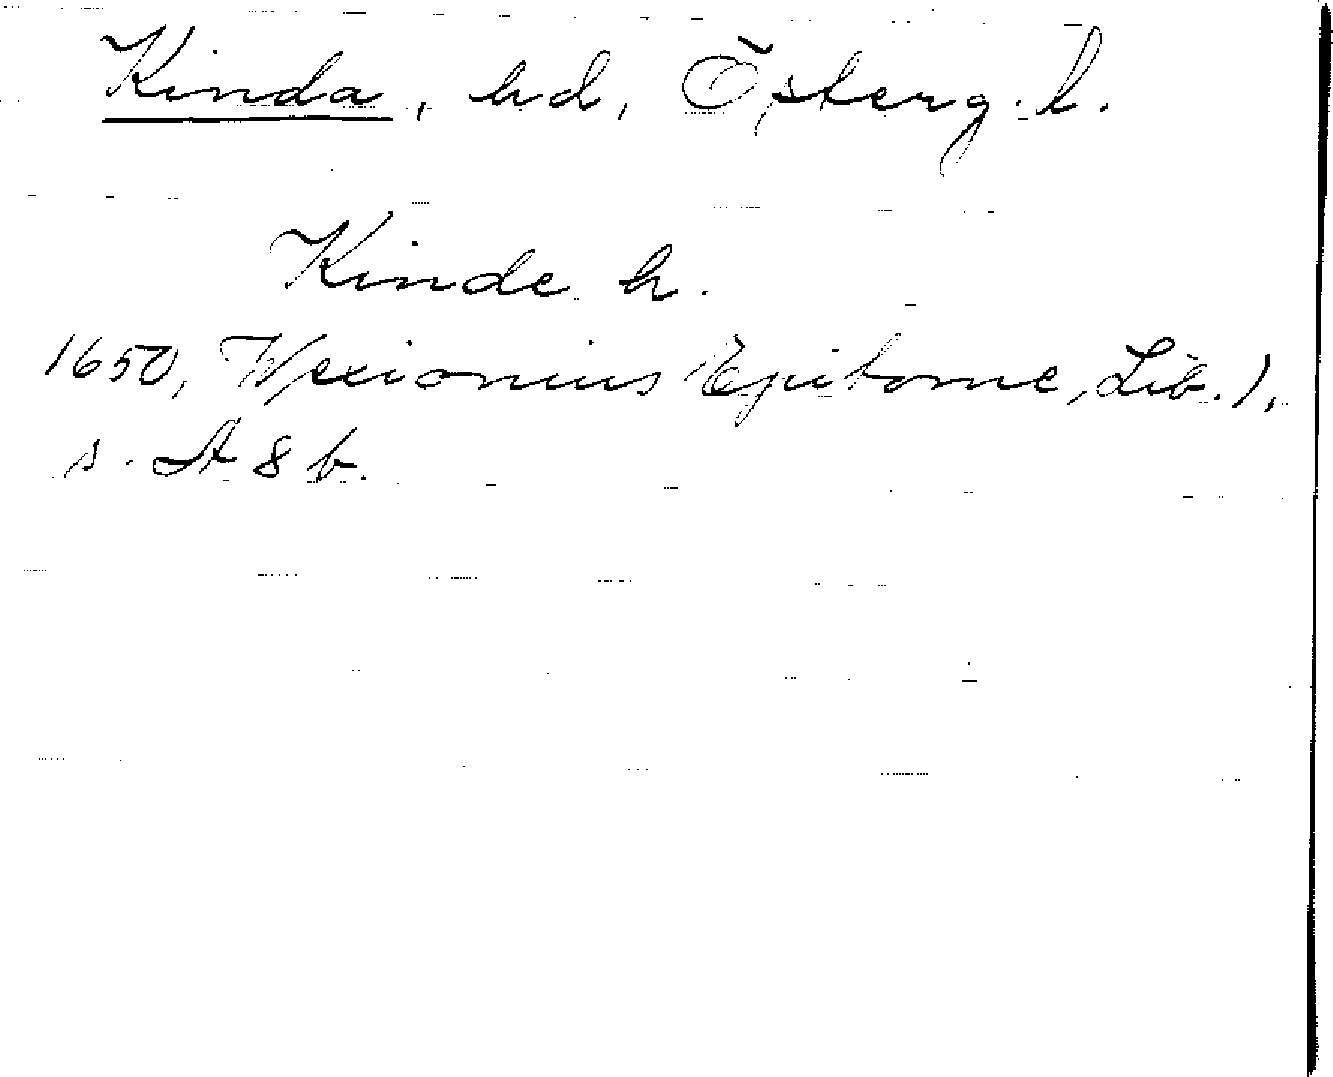 Kinda, hd, Österg. l.
Kinde h.
1650, Wexionius Epitome, Lib. 1,
s. A 8 b.